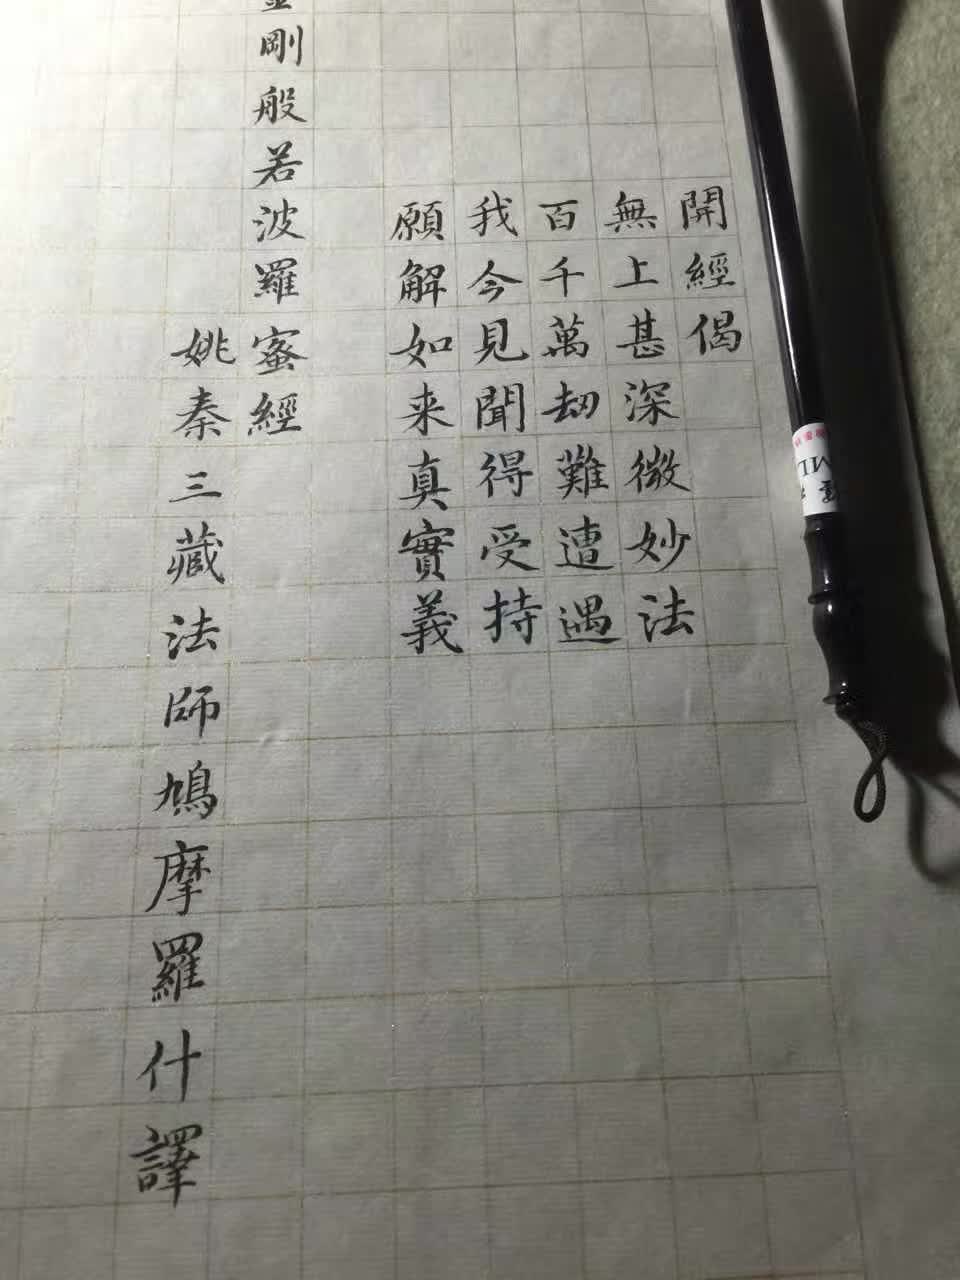 開經偈
無上甚深微妙法
百千萬劫難遭遇
我今見聞得受持
願解如来真實義
金剛般若波羅蜜經
姚秦三藏法師鳩摩羅什譯